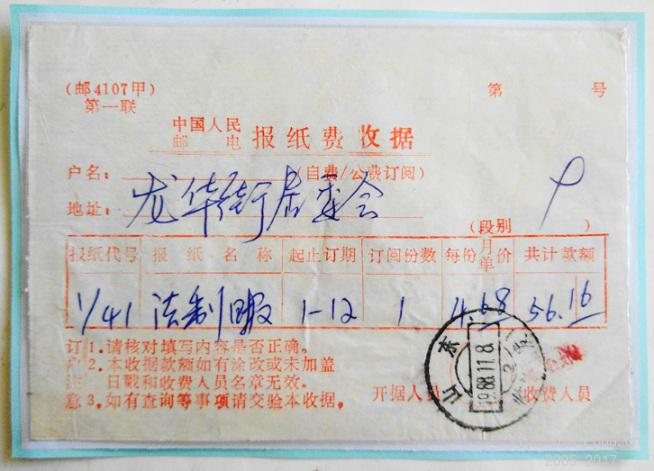 (邮4107甲) 第 号
第一联
中国人民
邮 电 报纸费收据
户名: (自费/公费订阅)
地址: 龙华街居委会
(段别 )
报纸代号 报纸名称 起止订期 订阅份数 每份月单价 共计款额
1/41 法制日报 1-12 1 4.68 56.16
订1.请核对填写内容是否正确。
户2.本收据款额如有涂改或未加盖
注 日戳和收费人员名章无效。
意3.如有查询等事项请交验本收据。
开据人员 收费人员
山东
1988.11.8
2005-2017